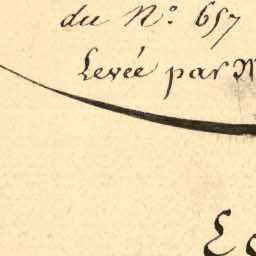 du N.° 657
Levée par